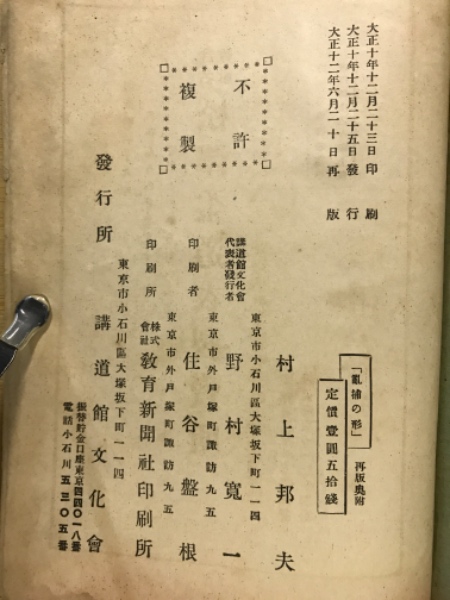 大正十年十二月二十三日印刷
大正十年十二月二十五日發行
大正十二年六月二十日再版
不許
複製
「亂捕の形」 再版奥附
定價壹圓五拾錢
村上邦夫
東京市小石川區大塚坂下町一一四
講道館文化會
代表者發行者
野村寬一
東京市外戸塚町諏訪九五
印刷者 住谷盤根
東京市外戸塚町諏訪九五
印刷所 株式會社 教育新聞社印刷所
東京市小石川區大塚坂下町一一四
發行所 講道館文化會
振替貯金口座東京四四〇一八番
電話小石川五三〇五番